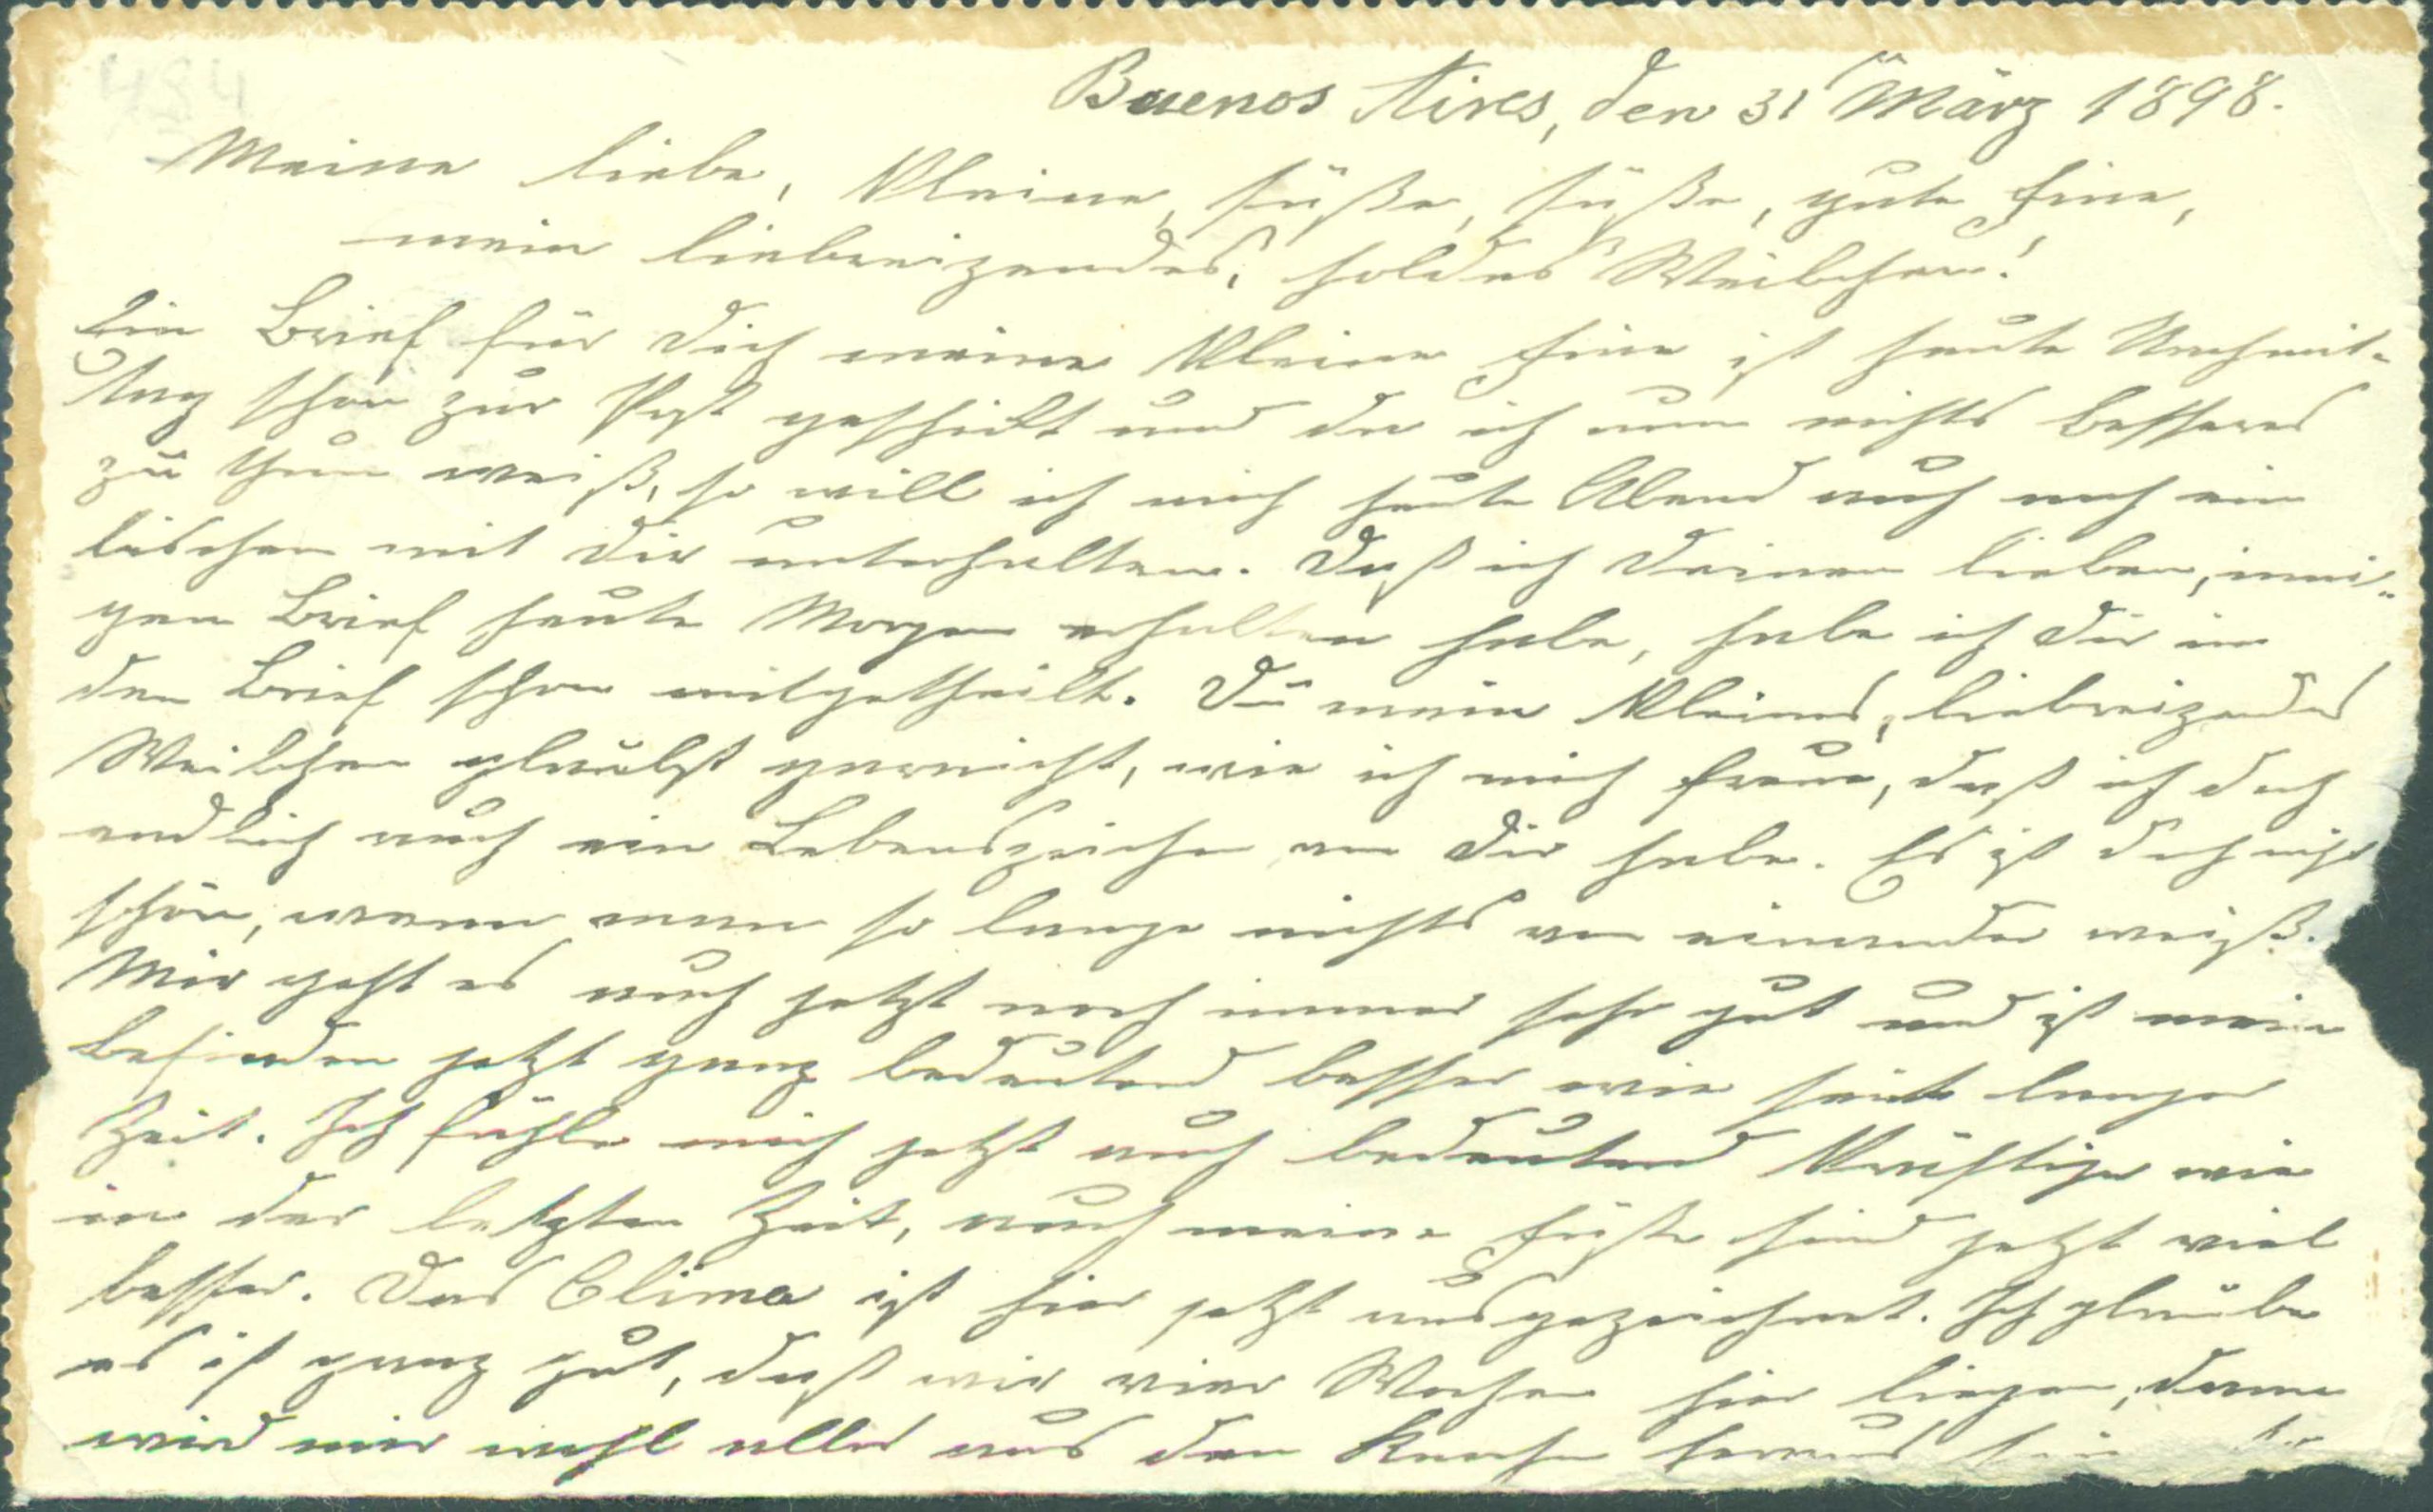 484
Buenos Aires, den 31 März 1898.
Meine liebe, kleine, süße, süße, gute Fine,
mein liebreizendes, holdes Weibchen!
Ein Brief für Dich meine kleine Fine ist heute Nachmit-
tag schon zur Post geschickt und da ich nun nichts besseres
zu thun weiß, so will ich mich heute Abend auch noch ein
bischen mit Dir unterhalten. Daß ich Deinen lieben, inni-
gen Brief heute Morgen erhalten habe, habe ich Dir in
dem Brief schon mitgetheilt. Du mein kleines, liebreizendes
Weibchen glaubst garnicht, wie ich mich freue, daß ich doch
endlich auch ein Lebenszeichen von Dir habe. Es ist doch nicht
schön, wenn man so lange nichts von einander weiß.
Mir geht es auch jetzt noch immer sehr gut und ist mein
Befinden jetzt ganz bedeutend besser wie seit langer
Zeit. Ich fühle mich jetzt auch bedeutend kräftiger wie
in der letzten Zeit, auch meine Füße sind jetzt viel
besser. Das Clima ist hier jetzt ausgezeichnet. Ich glaube
es ist ganz gut, daß wir vier Wochen hier liegen, dann
wird mir wohl alles aus den Knochen heraus sein